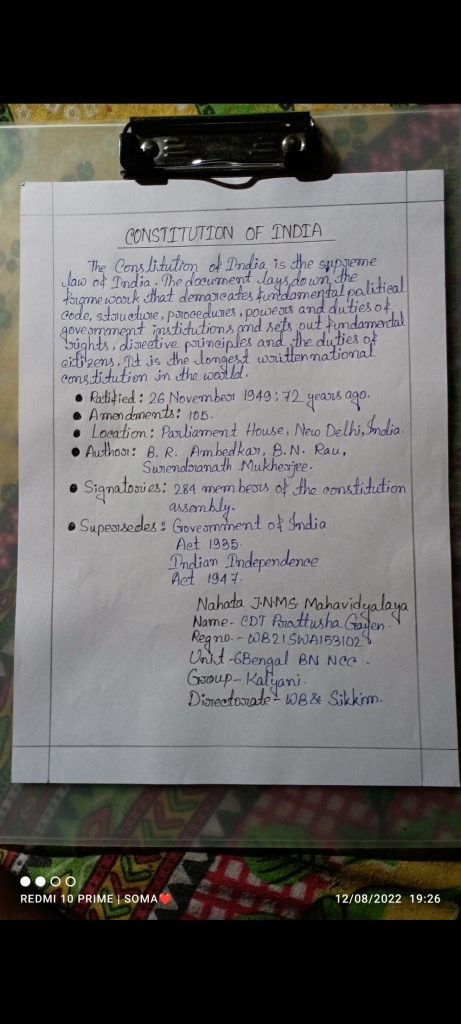 CONSTITUTION OF INDIA
The Constitution of India is the supreme
law of India. The document lays down the
framework that demarcates fundamental political
code, structure, procedures, powers and duties of
government institutions and sets out fundamental
rights, directive principles and the duties of
citizens. It is the longest written national
constitution in the world.
• Ratified: 26 November 1949; 72 years ago.
• Amendments: 105.
• Location: Parliament House, New Delhi, India.
• Author: B. R. Ambedkar, B.N. Rau,
Surendranath Mukherjee.
• Signatories: 284 members of the constitution
assembly.
• Supersedes: Government of India
Act 1935.
Indian Independence
Act 1947.
Nahata J.N.M.S Mahavidyalaya
Name- CDT Prattusha Gayen.
Reg no.- WB21SWA153102
Unit -6Bengal BN NCC.
Group- Kalyani.
Directorate- WB & Sikkim.
REDMI 10 PRIME | SOMA❤️
12/08/2022 19:26